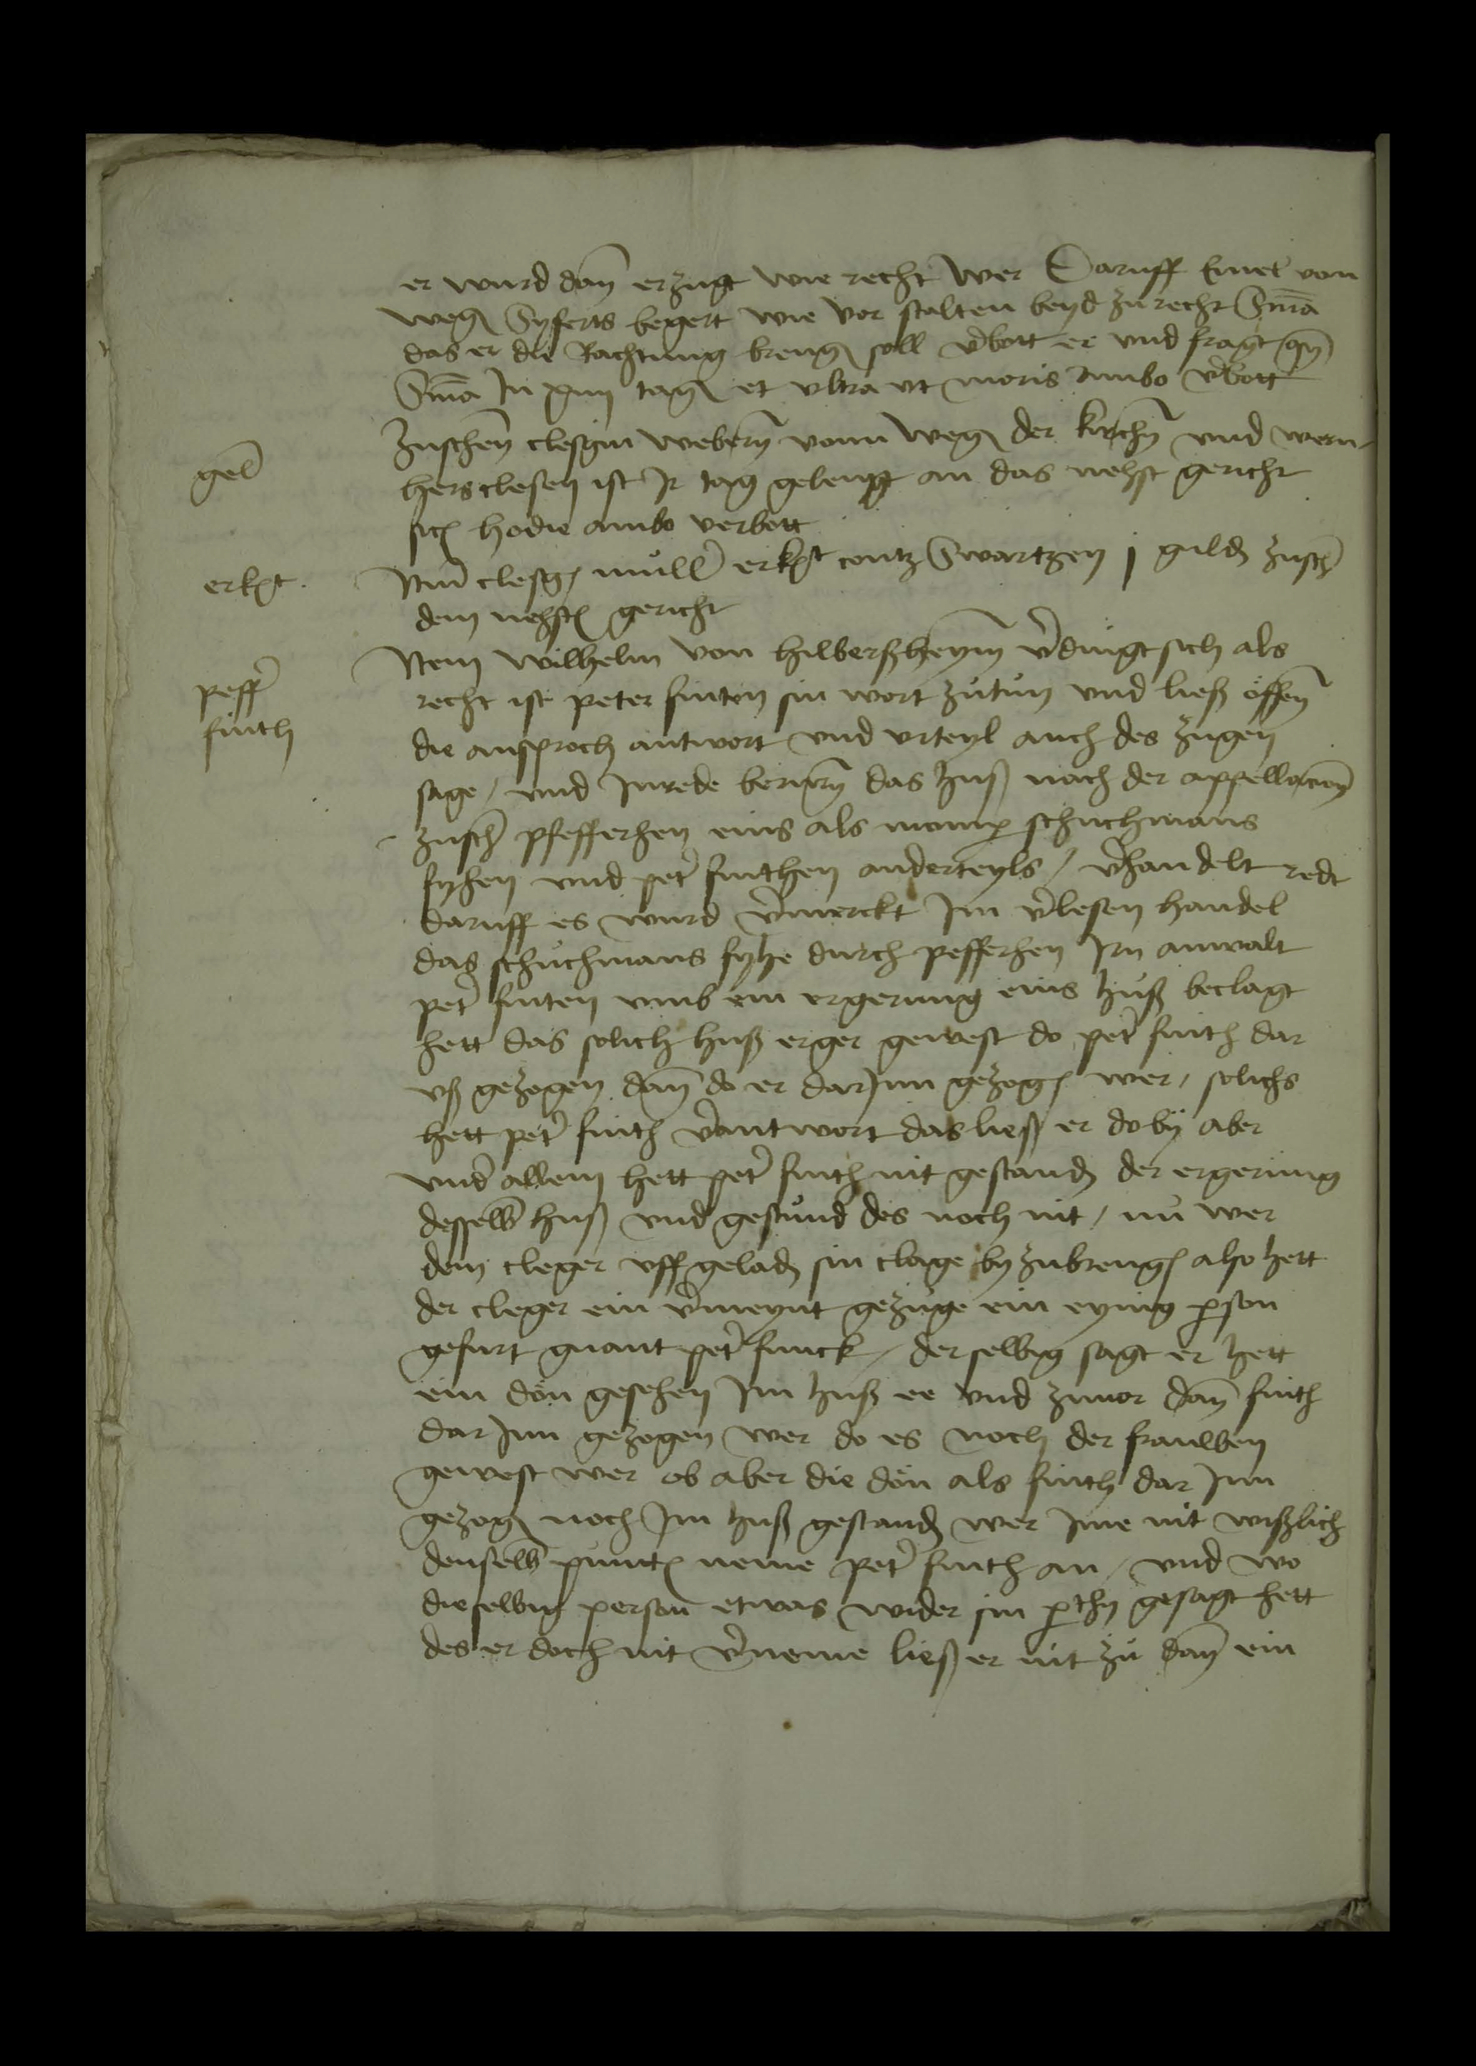 er wurd dan̄ erzugt wie recht wer Daruff Emeꝛ von
wegen Syferts begert wie vor stalten beyd zu recht Sn̄ia
das er die Rachtung brengen soll v̉bott er und fragt qn̄
Sn̄ia In xiiij tagen et ultra ut moris Ambo v̉bott
gel̄
Zuschen clesgin webern̄ vonn wegen der kirchn̄ und wern-
hers clesen ist Ir tag gelengt an das nehst gericht
sich hodie ambo verbott
erkēt.
Item clesgin mull̉ erkēt contz Swartzen j guldē zuschē
dem nehsten gericht
peff̉
finth
Item wilhelm von hilberßheym̄ v̉dingt sich als
recht ist peter finten sin wort zutun und ließ offen̄
die ansproch antwort und urteyl auch des zugen
sage / und Inrede berurn̄ das huß nach der appellacion̄
zuschē pfefferhen eins als momper schuchmans
fyhen und pet̉ finthen anderteyls / v̉handelt redt
daruff es wurd v̉merckt Im v̉lesen handel
das schuchmans fyhe durch pefferhen Irn anwalt
pet̉ finten umb ein ergerung eins huß beclagt
hett das solich huß erger gewest do pet̉ finth dar
uß gezogen dan̄ do er darInn gezogen wer / solichs
hett pet̉ finth v̉antwort das ließ er do by aber
und̉ allem hett pet̉ finth nit gestanden der ergerung
desselbē huß und gestund des noch nit / nu wer
dem cleger uff geladen sin clage by zubrengen also hett
der cleger ein v̉meynt gezuge ein eynig ꝑson
gefurt gnant pet̉ funck / derselbig sagt er hett
ein dön gesehen Im huß ee und zuuor dan̄ finth
dar Inn gezogen wer do es noch der frauwen
gewest wer ob aber die dön als finth dar Inn
gezogen noch Im huß gestanden wer Ime nit wißlich
denselbē puncten neme pet̉ finth an / und wo
dieselbig person etwas wider sin ꝑthy gesagt hett
des er doch nit v̉neme ließ er nit zu dan̄ ein